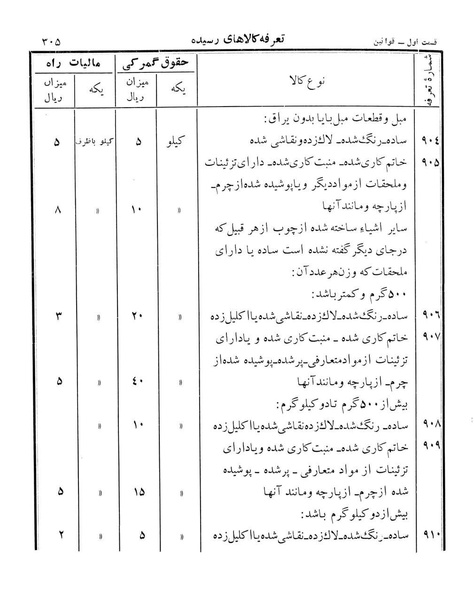 قسمت اول ــ قوانین تعرفه کالاهای رسیده ۳۰۵
شمارهٔ تعرفه نوع کالا حقوق گمرکی مالیات راه
یکه میزان ریال یکه میزان ریال
مبل و قطعات مبل با یا بدون یراق:
۹۰۴ ساده ـ رنگ شده ـ لاک زده و نقاشی شده کیلو ۵ کیلو باظرف ۵
۹۰۵ خاتم کاری شده ـ منبت کاری شده ـ دارای تزئینات
و ملحقات از مواد دیگر و یا پوشیده شده از چرم ـ
از پارچه و مانند آنها » ۱۰ » ۸
سایر اشیاء ساخته شده از چوب از هر قبیل که
در جای دیگر گفته نشده است ساده یا دارای
ملحقات که وزن هر عدد آن:
۵۰۰ گرم و کمتر باشد:
۹۰۶ ساده ـ رنگ شده ـ لاک زده ـ نقاشی شده یا اکلیل زده » ۲۰ » ۳
۹۰۷ خاتم کاری شده ـ منبت کاری شده و یا دارای
تزئینات از مواد متعارفی ـ پر شده ـ پوشیده شده از
چرم ـ از پارچه و مانند آنها » ۴۰ » ۵
بیش از ۵۰۰ گرم تا دو کیلوگرم:
۹۰۸ ساده ـ رنگ شده ـ لاک زده نقاشی شده یا اکلیل زده » ۱۰ »
۹۰۹ خاتم کاری شده ـ منبت کاری شده و یا دارای
تزئینات از مواد متعارفی ـ پر شده ـ پوشیده
شده از چرم ـ از پارچه و مانند آنها » ۱۵ » ۵
بیش از دو کیلوگرم باشد:
۹۱۰ ساده ـ رنگ شده ـ لاک زده ـ نقاشی شده یا اکلیل زده » ۵ » ۲